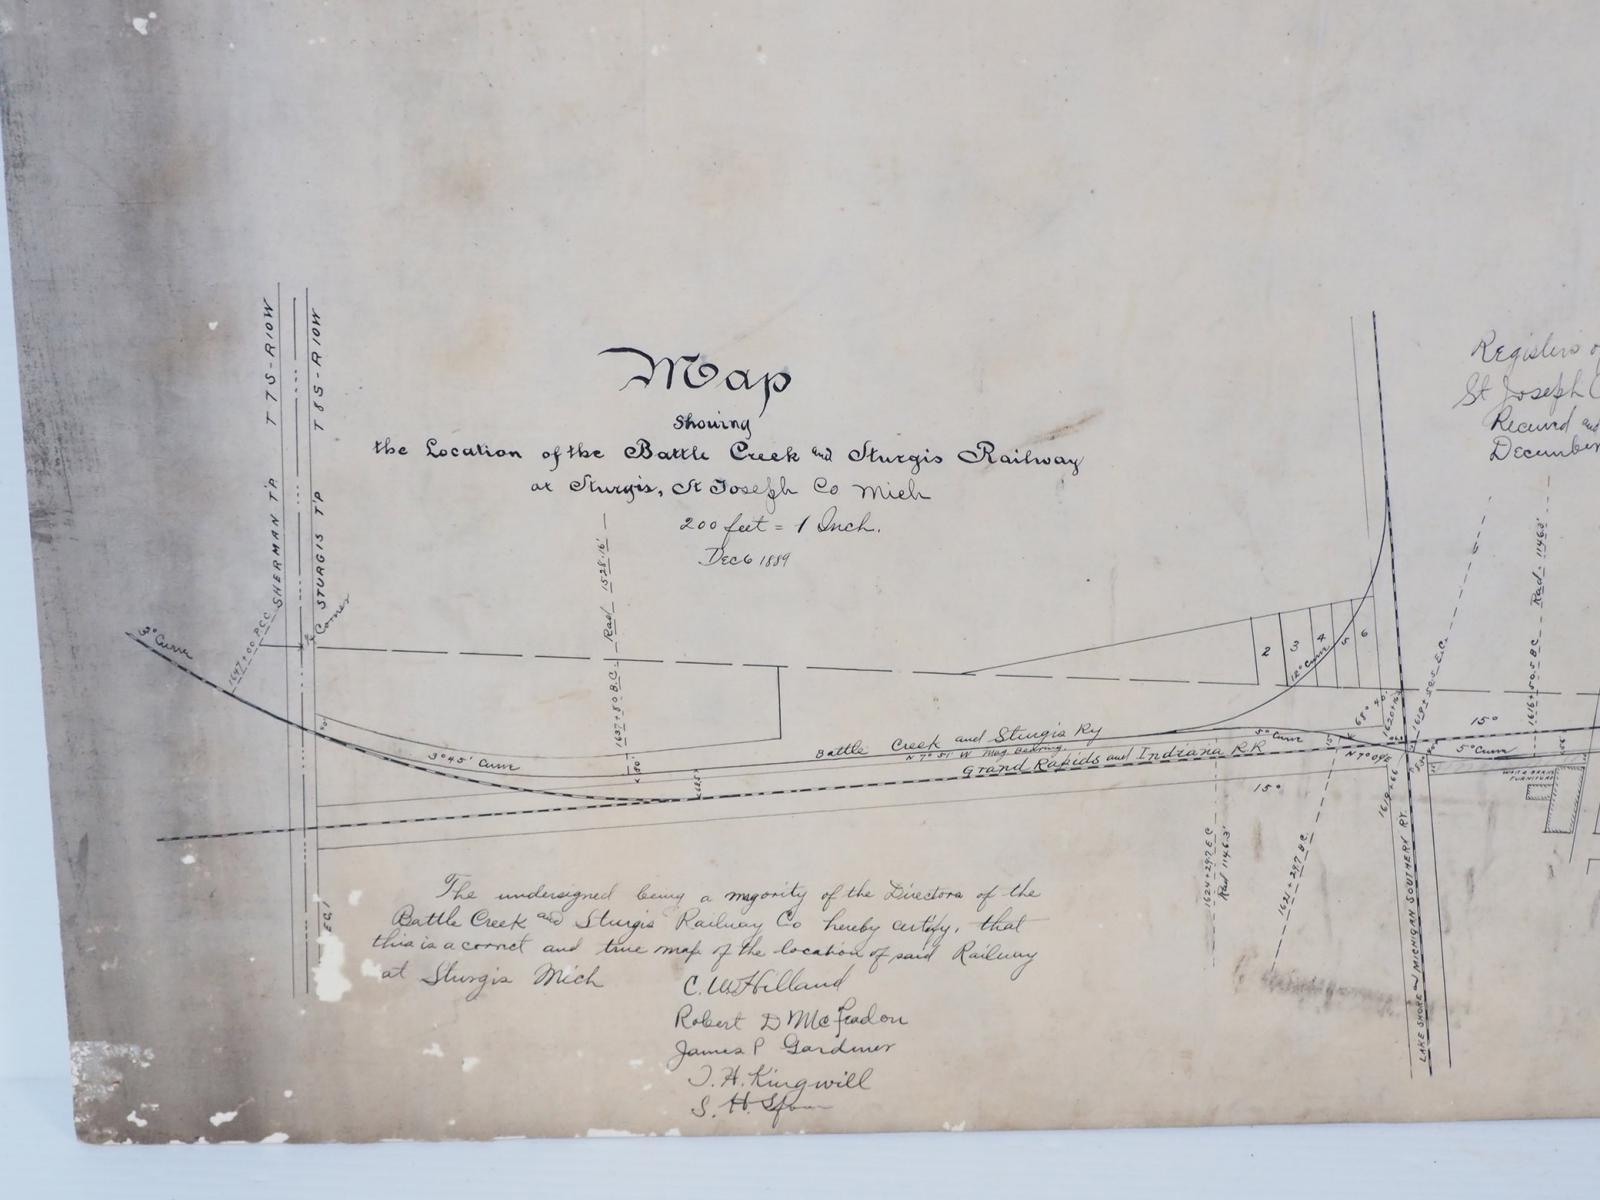 Map
Showing
the Location of the Battle Creek and Sturgis Railway
at Sturgis, St Joseph Co Mich
200 feet = 1 Inch.
Dec 6 1889
Registers of
St Joseph C
December
T 7 S - R 10 W
T 8 S - R 10 W
SHERMAN T'P
STURGIS T'P
Corner
1647+00 P.C.C.
3° Curve
3°45' Curve
Rad 1528.16'
1637+80 B.C.
50'
Battle Creek and Sturgis Ry
N 7° 51' W Mag Bearing.
Grand Rapids and Indiana R.R
2
3
4
5
6
12° Curve
5° Curve
15°
5° Curve
15°
Rad. 1146.3'
1624+297 E.C
Rad 1146.3'
1621+297 B.C.
LAKE SHORE and MICHIGAN SOUTHERN RY.
FURNITURE
The undersigned being a majority of the Directors of the
Battle Creek and Sturgis Railway Co hereby certify, that
this is a correct and true map of the location of said Railway
at Sturgis Mich
C. W. Hilland
Robert D McFeadon
James P Gardner
T. H. Kingwill
S. H.